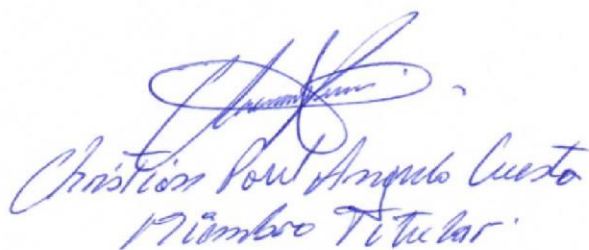 Christian Paul Angulo Cuesta
Miembro Titular.